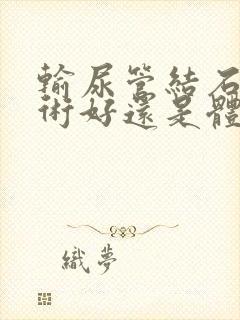 輸尿管結石
術好還是體
織夢